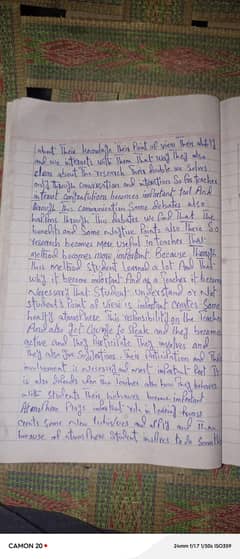 about Their knowledge Their Point of view Their ability
and we interacts with Them That way They also
clear about The research Some double we Solves
only Through conversation and interaction So for teacher
interact becomes important tool And
Through This communication Some debates also
happens Through This debates we find That The
benefits and Some negitive Points also There So
research becomes more useful in teacher That
method becomes more important. Because Through
This method student learned a lot And That
why it become important And as a teacher it became
necessary That Student understand or not
Student's Point of view is important creates Some
healty atmosphere. This responsibility on The Teacher
And also get courage to Speak and They became
active and They Participate They involves and
They also give Suggestions. Their Participation and This
involvement is necessary and most important Part. It
is also depends upon The teacher also how They behaves
with Students Their behaves become important
Atmosphere Plays important role in learning
creats some and it is
because of atmosphere Student inclines to do Something
CAMON 20
24mm f/1.7 1/50s ISO359